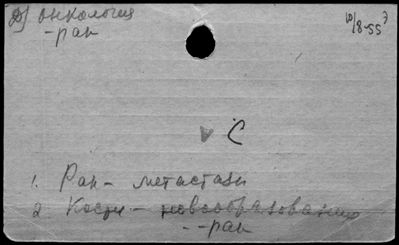 онкология
-рак
10/8-55
С
1. Рак - метастазы
2. Кости - новообразования
- - рак